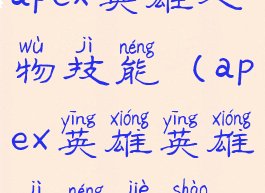 apex英雄人
wù jì néng
物技能（ap
yīng xióng yīng xióng
ex英雄英雄
jì néng jiè shào